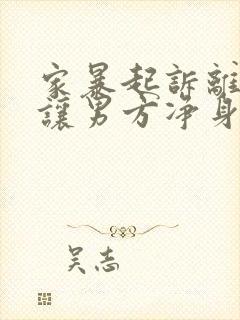 家暴起訴離
讓男方净身
吴志